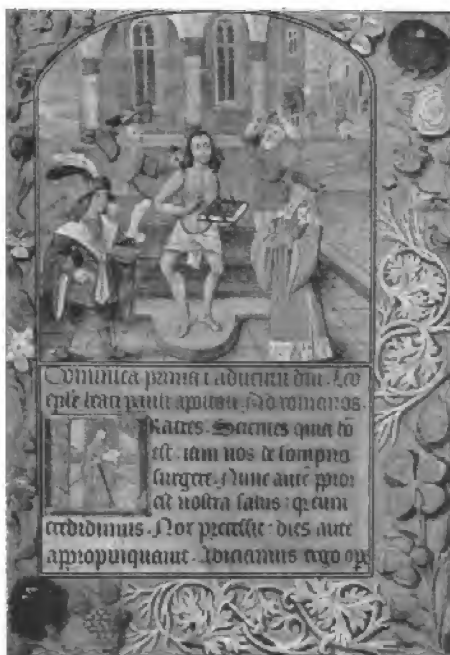 Dominica prima i aduentu dni. Lco
eple beati pauli apostoli. Ad romanos.
Fratres. Scientes quia ho
est. iam nos de sompno
surgere. Nunc aute ppior
est nostra salus: q; cum
credidimus. Nox precessit: dies aute
appropinquauit. Abiciamus ergo opa